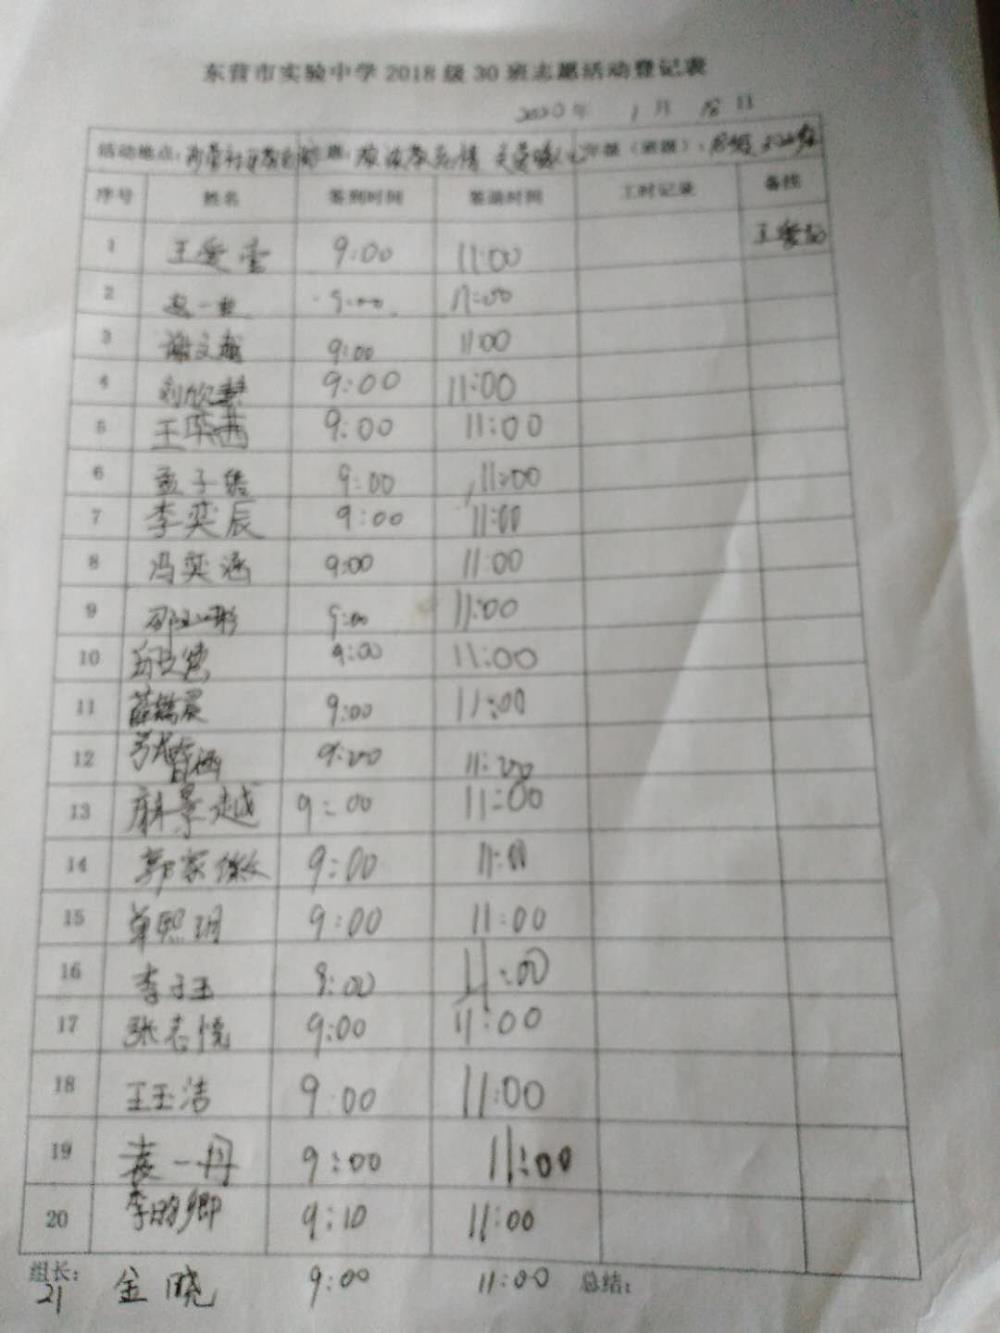 东营市实验中学2018级30班志愿活动登记表
2020年 1月 18日
活动地点：
序号 姓名 签到时间 签退时间 工时记录 备注
1 王爱 9:00 11:00 王爱
2 一 9:00 11:00
3 谢文越 9:00 11:00
4 刘欣慧 9:00 11:00
5 王茜 9:00 11:00
6 孟子 9:00 11:00
7 李奕辰 9:00 11:00
8 冯奕涵 9:00 11:00
9 9:00 11:00
10 9:00 11:00
11 薛晨 9:00 11:00
12 涵 9:00 11:00
13 麻景越 9:00 11:00
14 郭家 9:00 11:00
15 单熙玥 9:00 11:00
16 李子玉 9:00 11:00
17 张志悦 9:00 11:00
18 王玉洁 9:00 11:00
19 袁一丹 9:00 11:00
20 李卿 9:10 11:00
组长： 总结：
21 金晓 9:00 11:00